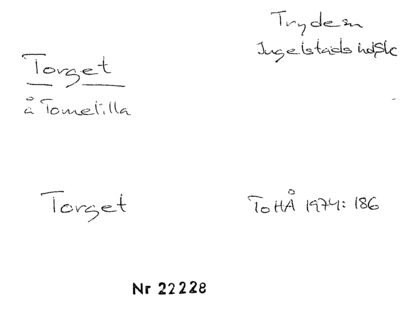 Tryde sn
Ingelstads hdsk
Torget
å Tomelilla
Torget
ToHÅ 1974: 186
Nr 22228